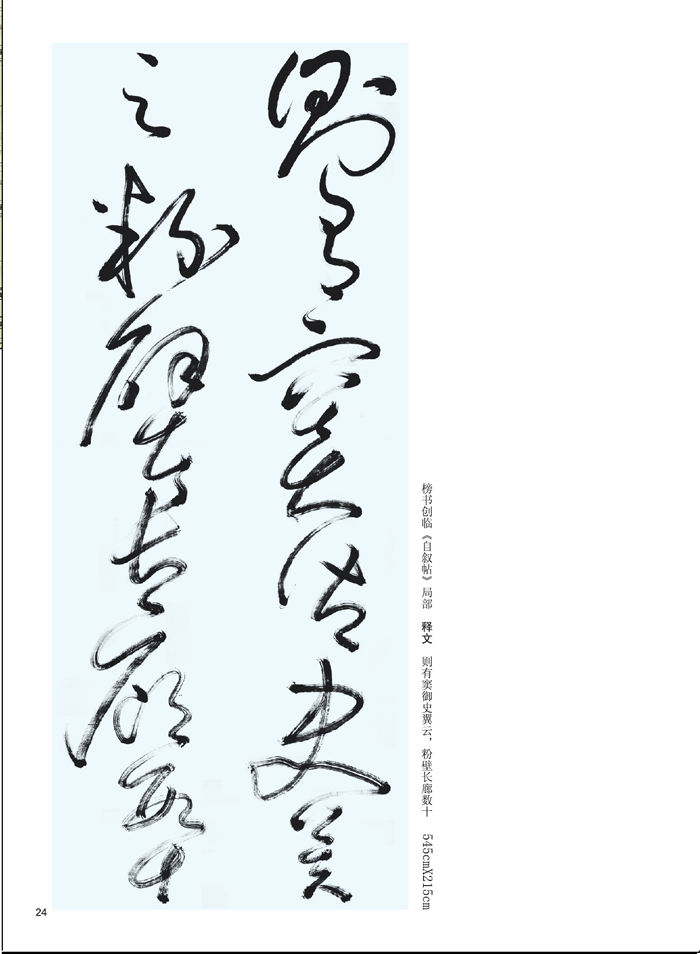 则有窦御史冀
云粉壁长廊数十
榜书创临《自叙帖》局部 释文 则有窦御史翼云，粉壁长廊数十 545cmX215cm
24